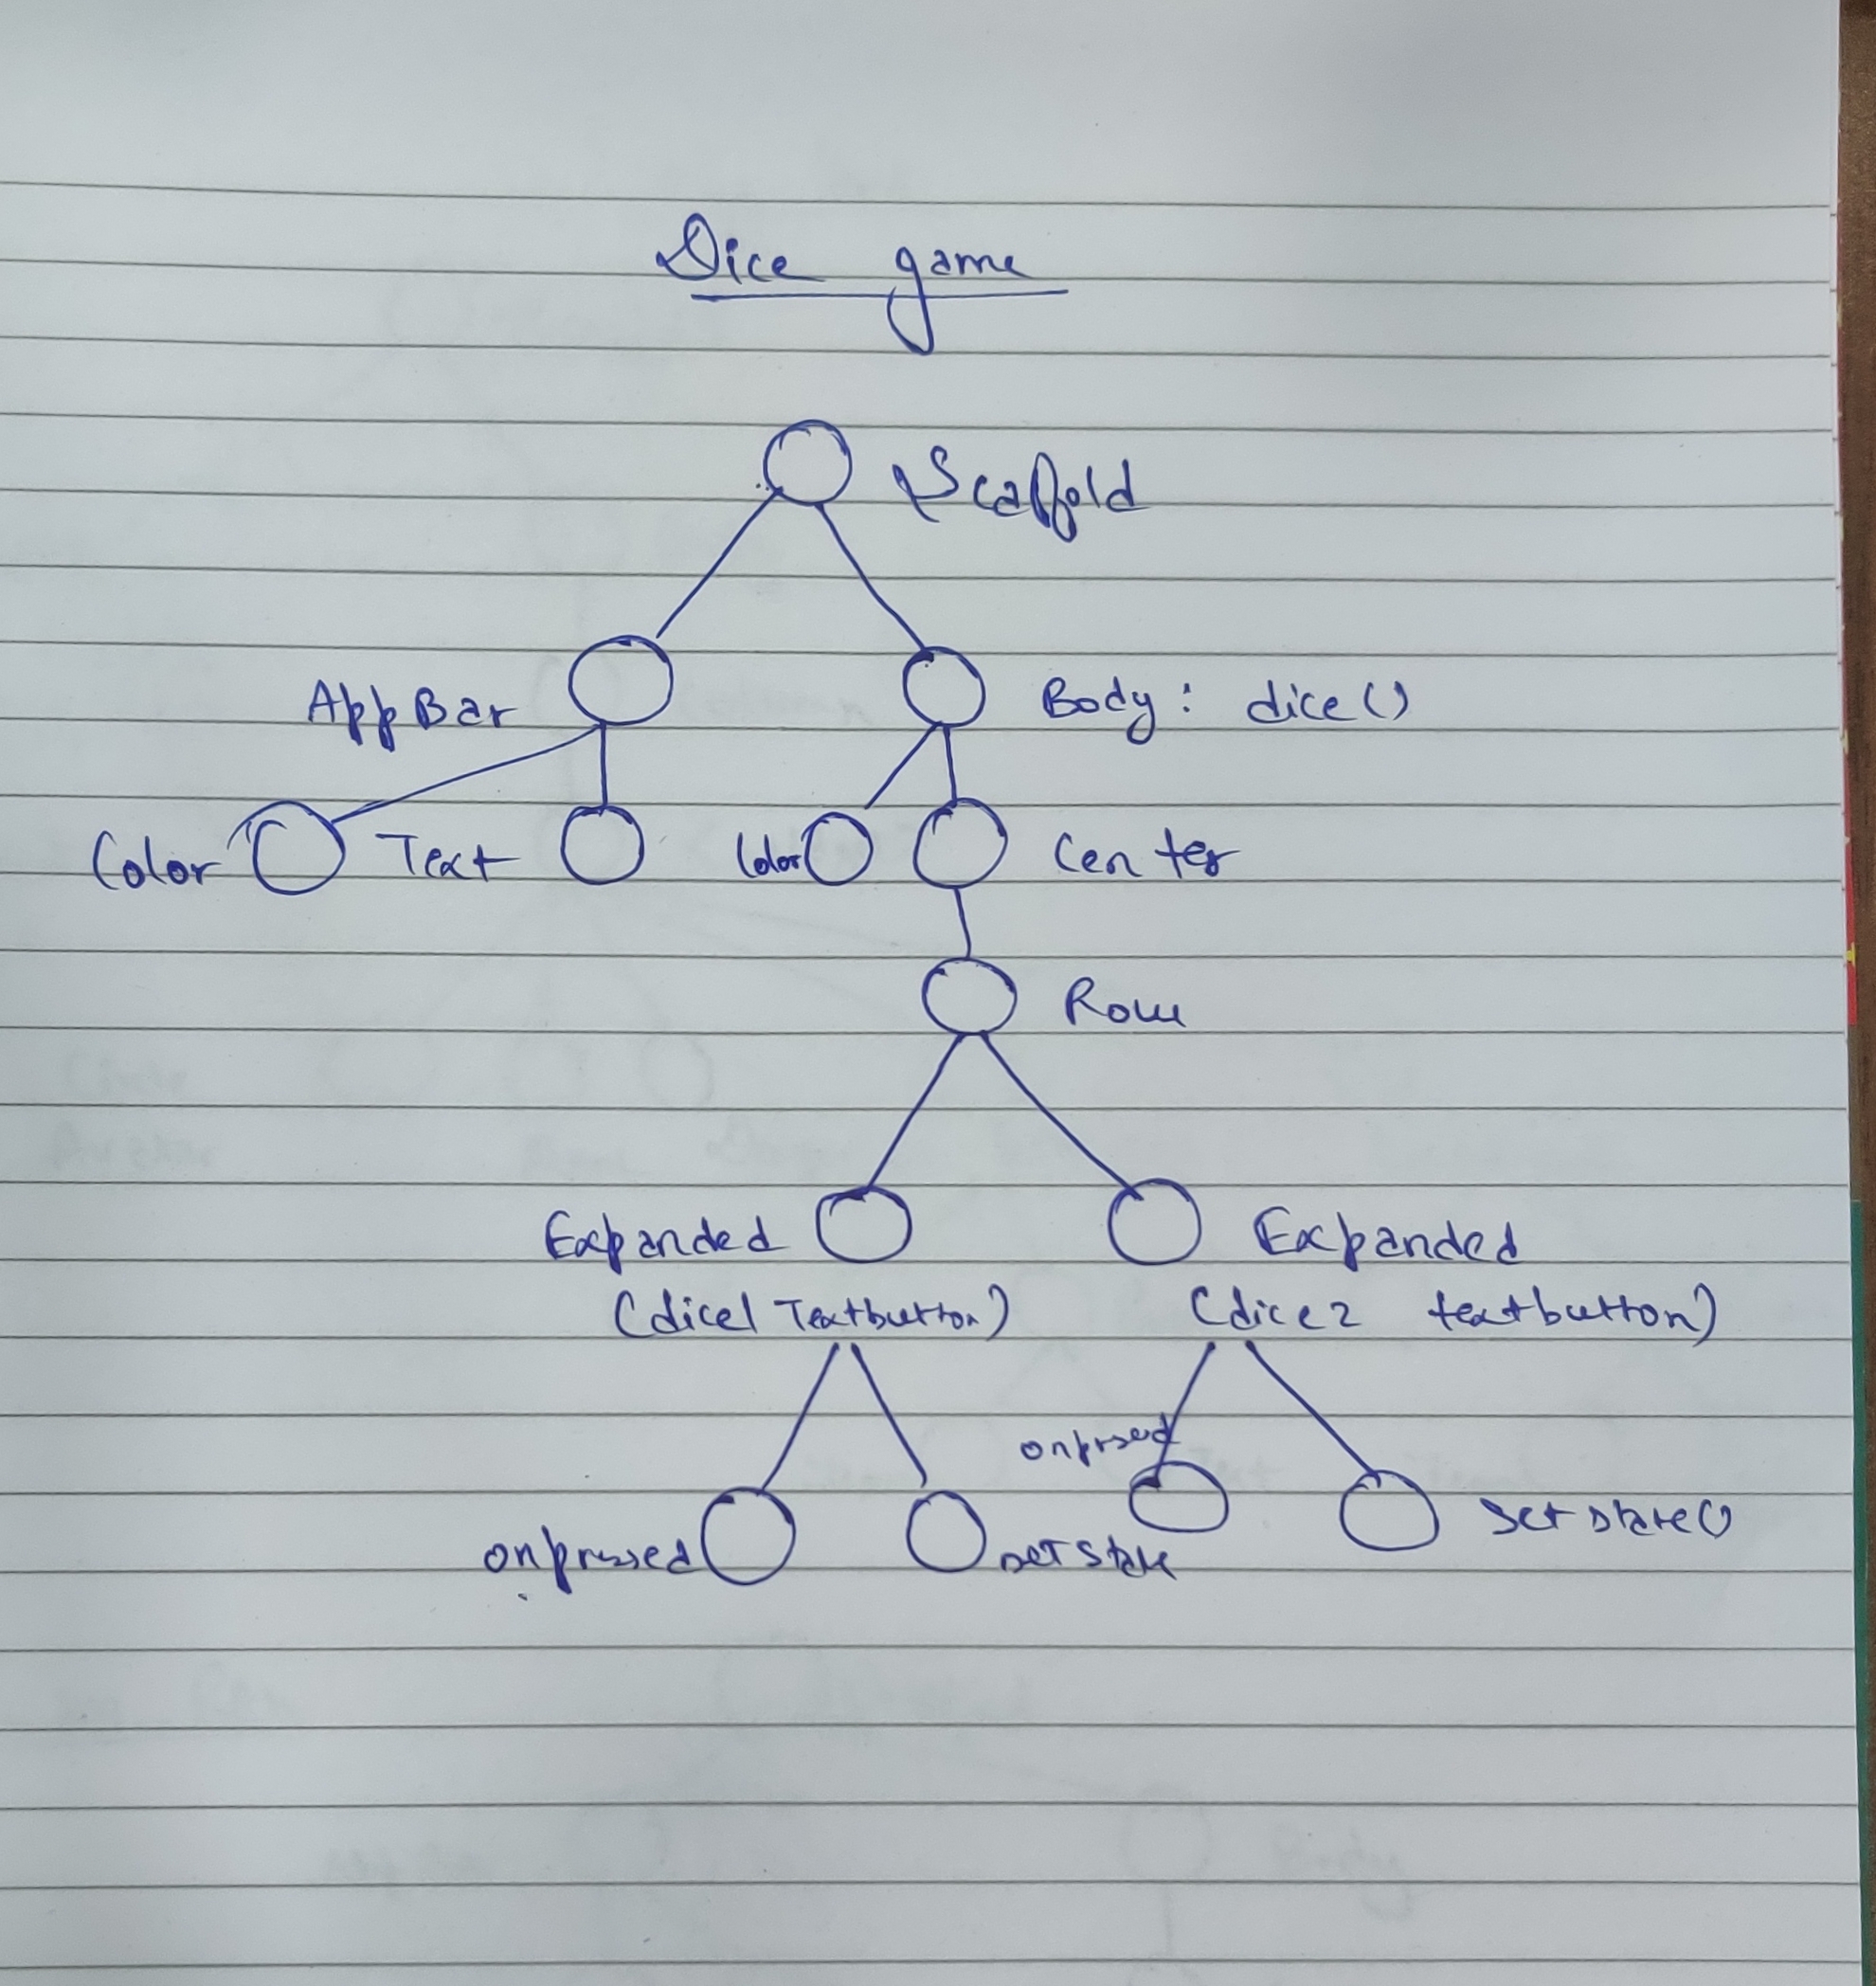 Dice game
Scaffold
AppBar
Body: dice()
Color
Text
Color
Center
Row
Expanded
(dice1 Textbutton)
Expanded
(dice2 textbutton)
onpressed
setstate
onprsed
setstate()